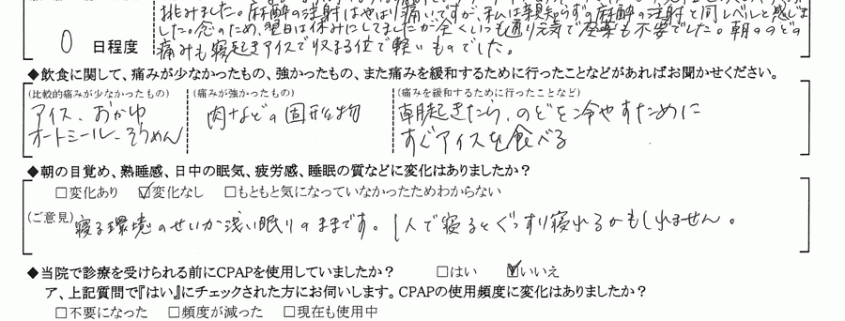 挑みました。麻酔の注射はやはり痛いですが、私は親知らずの麻酔の注射と同レベルと感じま
0 日程度
した。念のため、翌日は休みにしてましたが全くいつも通り元気で
痛みも寝起きアイスで収まる位で軽いものでした。
◆飲食に関して、痛みが少なかったもの、強かったもの、また痛みを緩和するために行ったことなどがあればお聞かせください。
(比較的痛みが少なかったもの) (痛みが強かったもの) (痛みを緩和するために行ったことなど)
アイス、おかゆ 肉などの固形物 朝起きたら、のどを冷やすために
オートミール、そうめん すぐアイスを食べる
◆朝の目覚め、熟睡感、日中の眠気、疲労感、睡眠の質などに変化はありましたか？
□変化あり ☑変化なし □もともと気になっていなかったためわからない
(ご意見) 寝る環境のせいか浅い眠りのままです。1人で寝るとぐっすり寝れるかもしれません。
◆当院で診療を受けられる前にCPAPを使用していましたか？ □はい ☑いいえ
ア、上記質問で『はい』にチェックされた方にお伺いします。CPAPの使用頻度に変化はありましたか？
□不要になった □頻度が減った □現在も使用中